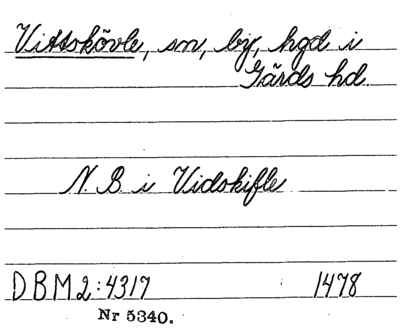 Vittskövle, sn, by, hgd i
Gärds hd.
N. B. i Vidskifle
DBM2:4317 1478
Nr 5340.